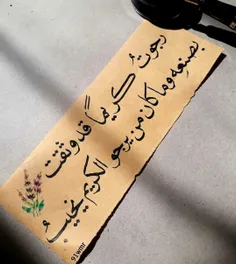 رجوتُ كريمًا قد وثقت
بصنعِه وما كان من يرجو الكريم يخيبُ